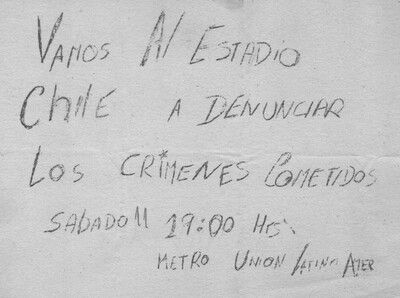 VAMOS Al ESTADIO
CHILE A DENUNCIAR
LOS CRIMENES COMETIDOS
SABADO 11 19:00 Hrs.
METRO UNION LATINO AMER